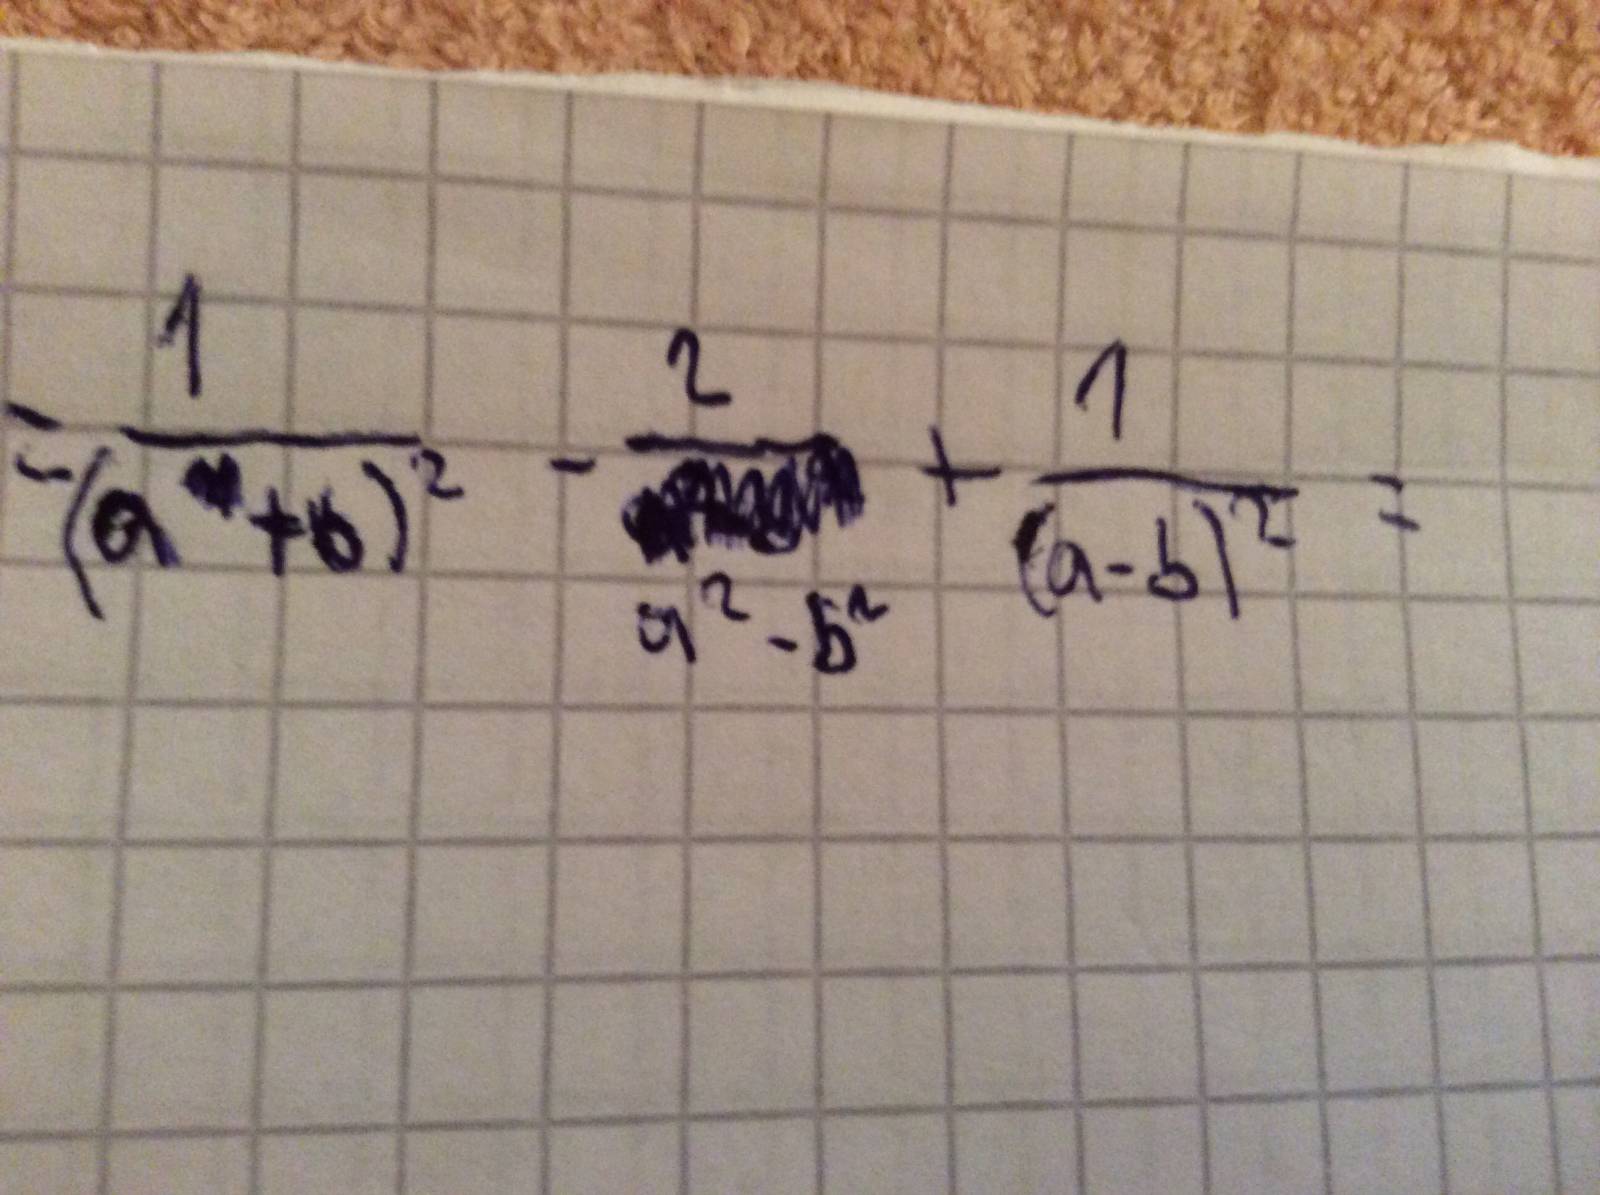 = 1/(a+b)² - 2/(a²-b²) + 1/(a-b)² =